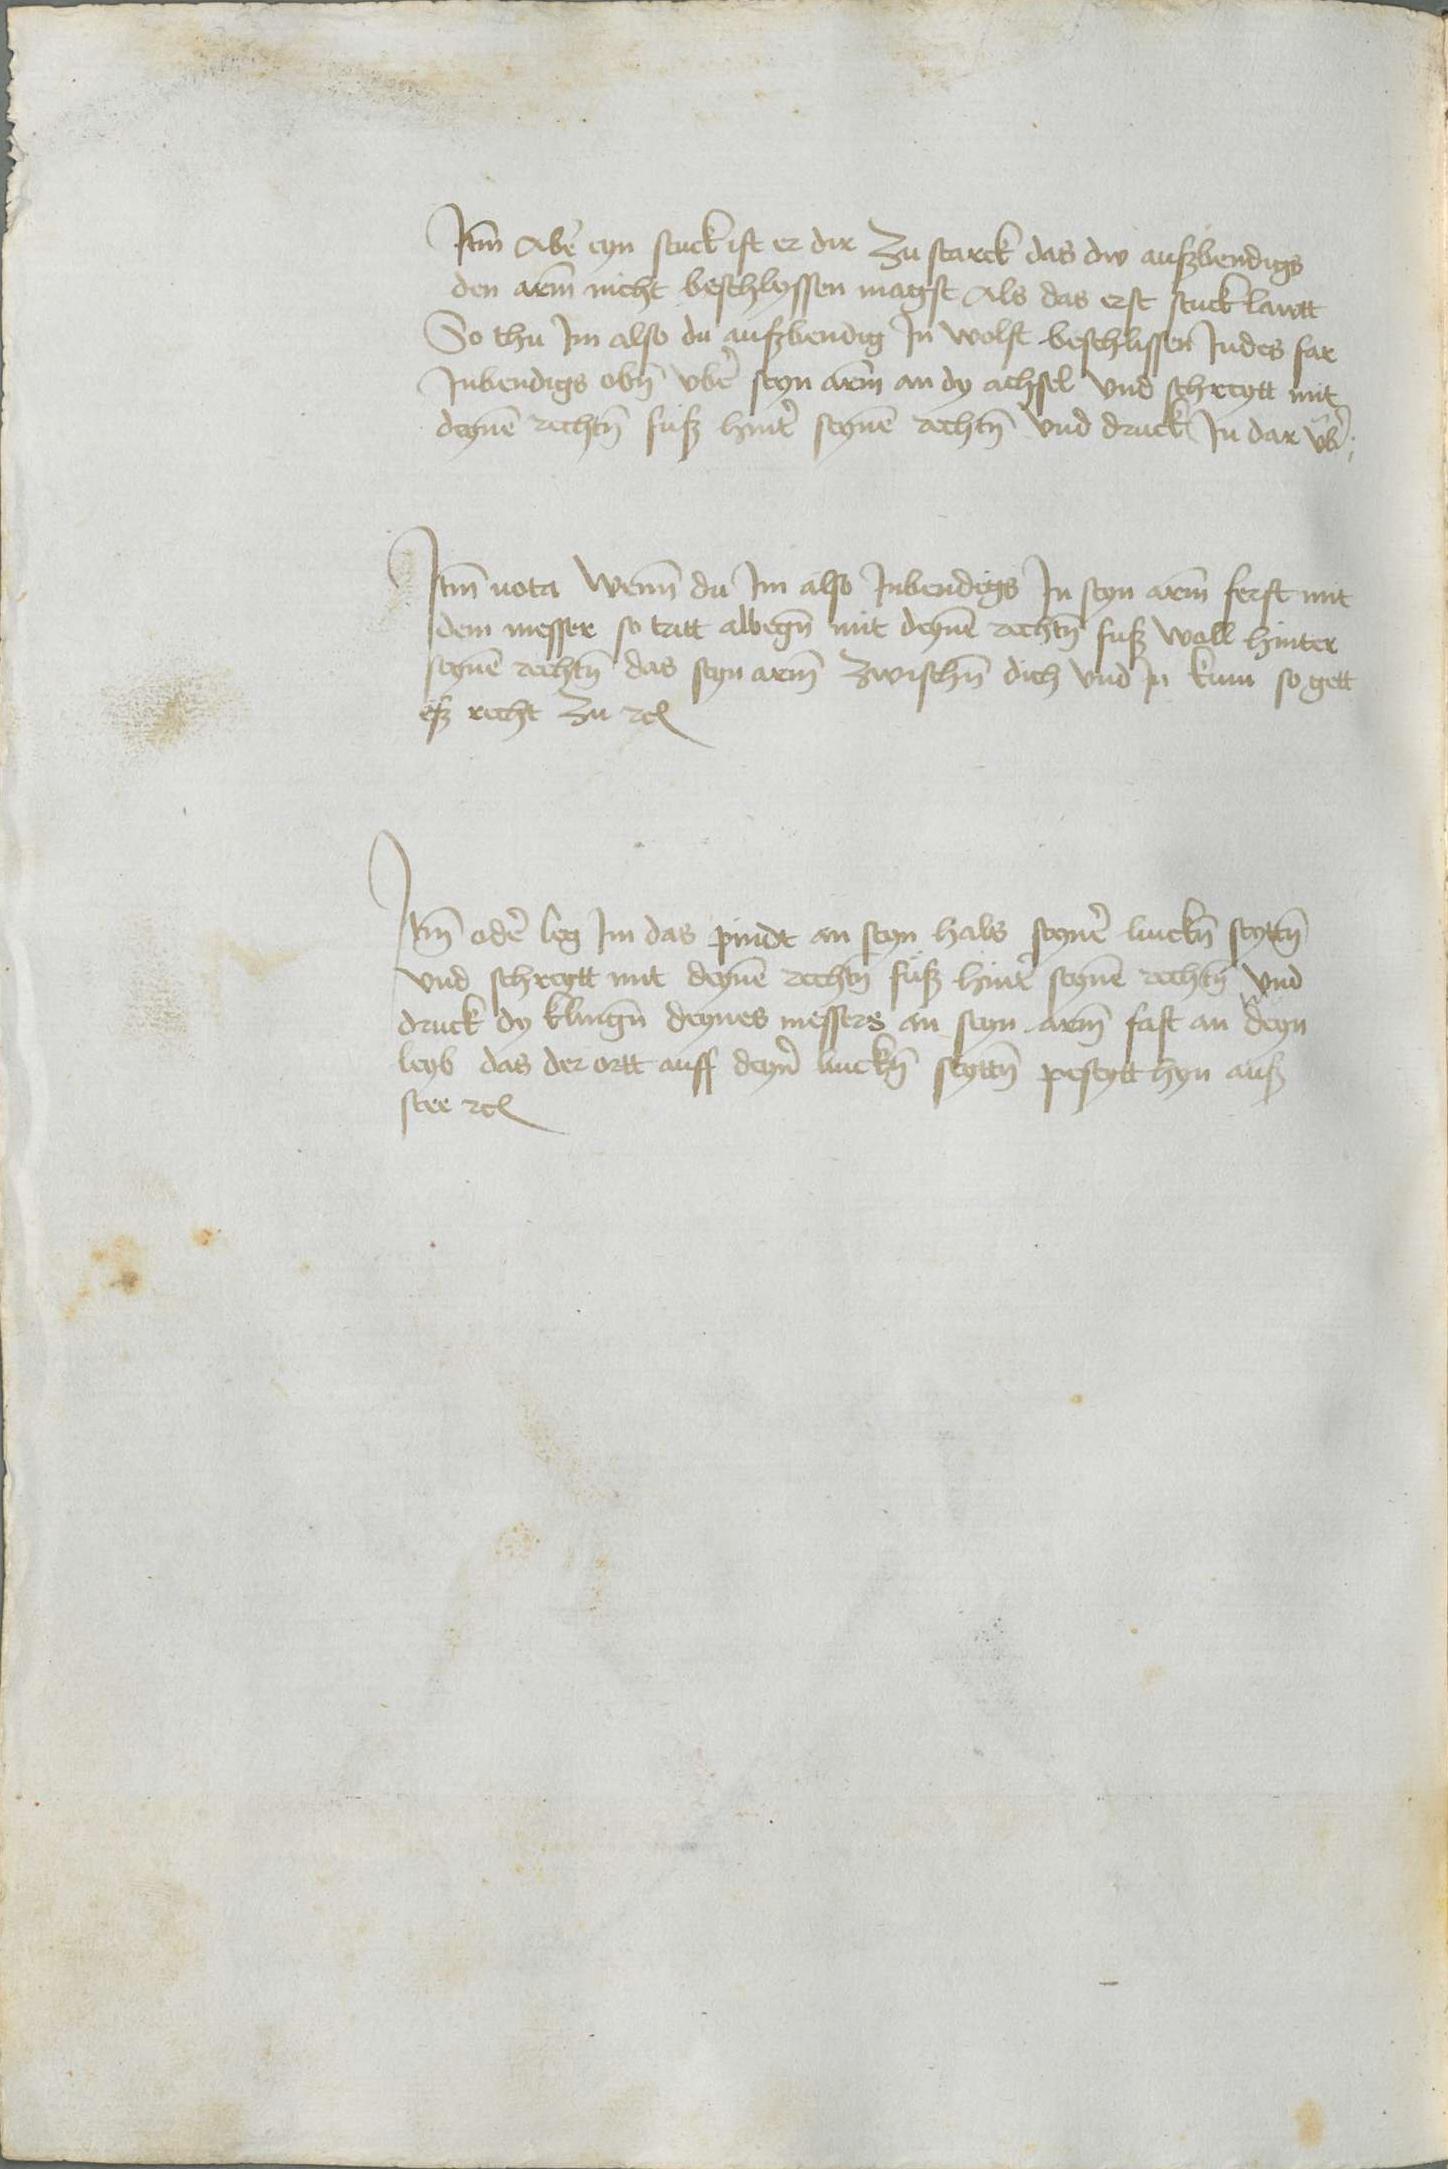 Itm̄ Abē eyn stuck ist er dir Zu starck das dw außbendigs
den arm̄ nicht beschlyssen magst Als das erst stuck lawtt
So thu Im also du außbendig In wolst beschlissen Indes far
Inbendigs obn̄ vbē seyn arm̄ an dy achsel vnd schreytt mit
deynē rechtn̄ fuß hintē seynē rechtn̄ vnd druck In dar vbē
Itm̄ nota Wenn̄ du Im also Inbendigs In seyn arm̄ ferst mit
dem messer so tritt albegn̄ mit deynē rechtn̄ fuß woll hinter
seynē rechtn̄ das seyn arm̄ Zwischn̄ dich vnd In kum so gett
eß recht Zu ꝛcꝭ
Itm̄ odē leg Im das pindt an seyn hals seynē linckn̄ seyttn̄
vnd schreytt mit deynē rechtn̄ fuß hintē seynē rechtn̄ vnd
druck dy klingn̄ deynes messers an seyn arm̄ fast an deyn
leyb das der ortt auff deynē linckn̄ seyttn̄ peseytt hyn auß
stee ꝛcꝭ